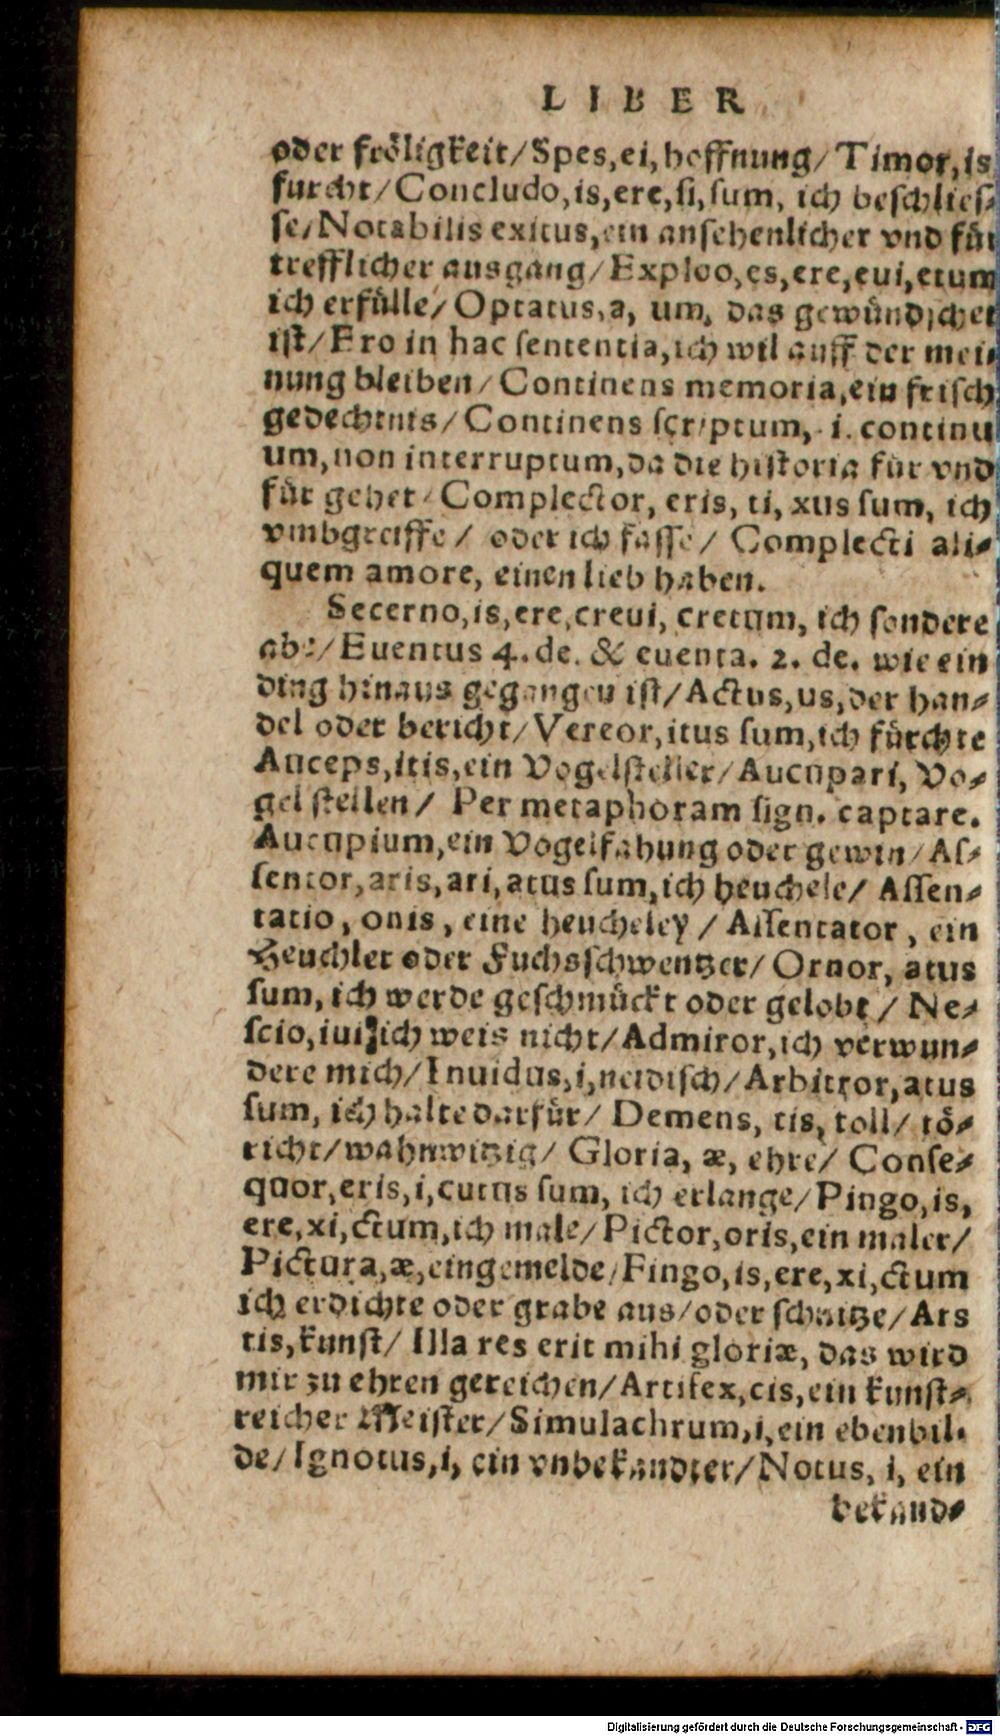 LIBER
oder fröligkeit/Spes,ei,hoffnung/Timor,is
furcht/Concludo,is,ere,si,sum, ich beschlies-
se/Notabilis exitus,ein ansehenlicher vnd für
trefflicher ausgang/Expleo,es,ere,eui,etum
ich erfülle/Optatus,a, um, das gewündschet
ist/Ero in hac sententia,ich wil auff der mei-
nung bleiben/Continens memoria,ein frisch
gedechtnis/Continens scriptum, i. continu
um,non interruptum,da die historia für vnd
für gehet/Complector, eris, ti, xus sum, ich
vmbgreiffe/ oder ich fasse/ Complecti ali-
quem amore, einen lieb haben.
Secerno,is,ere,creui, cretum, ich sondere
abe/Euentus 4.de. & euenta. 2. de. wie ein
ding hinaus gegangen ist/Actus,us,der han-
del oder bericht/Vereor,itus sum,ich fürchte
Auceps,itis,ein Vogelsteller/Aucupari, Vo-
gel stellen/ Per metaphoram sign. captare.
Aucupium,ein Vogelfahung oder gewin/As-
sentor,aris,ari,atus sum,ich heuchele/ Assen-
tatio, onis, eine heucheley/ Assentator, ein
Heuchler oder Fuchsschwentzer/ Ornor, atus
sum, ich werde geschmückt oder gelobt/ Ne-
scio,iui,ich weis nicht/Admiror,ich verwun-
dere mich/Inuidus,i,neidisch/Arbitror,atus
sum, ich halte darfür/ Demens, tis, toll/ tö-
richt/wahnwitzig/ Gloria, æ, ehre/ Conse-
quor,eris,i,cutus sum, ich erlange/Pingo,is,
ere,xi,ctum,ich male/Pictor,oris,ein maler/
Pictura,æ,eingemelde/Fingo,is,ere,xi,ctum
ich erdichte oder grabe aus/oder schnitze/Ars
tis,kunst/ Illa res erit mihi gloriæ, das wird
mir zu ehren gereichen/Artifex,cis,ein kunst-
reicher Meister/Simulachrum,i,ein ebenbil-
de/Ignotus,i, ein vnbekandter/Notus, i, ein
bekand-
Digitalisierung gefördert durch die Deutsche Forschungsgemeinschaft - DFG